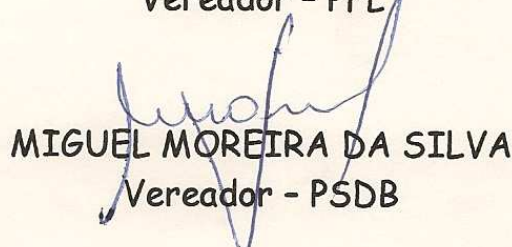 Vereador - PFL
MIGUEL MOREIRA DA SILVA
Vereador - PSDB